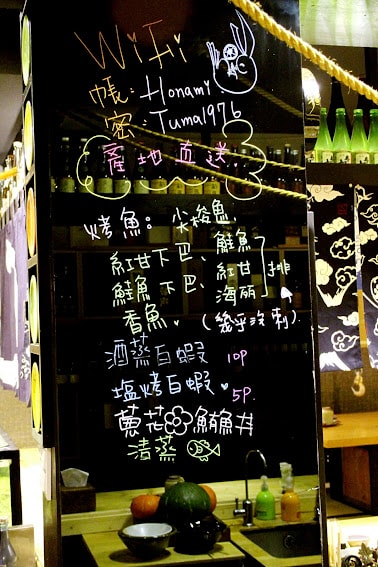 WiFi
帳：Honami
密：Tuma1976
產地直送
烤魚：尖梭魚
紅甘下巴、鮭魚
鮭魚下巴、紅甘
海鱺
排
香魚、(幾乎沒刺)
酒蒸白蝦 10P
塩烤白蝦 5P.
蔥花鮪魚丼
清蒸